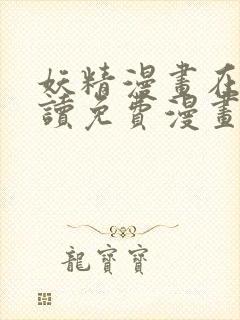 妖精漫畫在
讀免費漫畫
龍寶寶